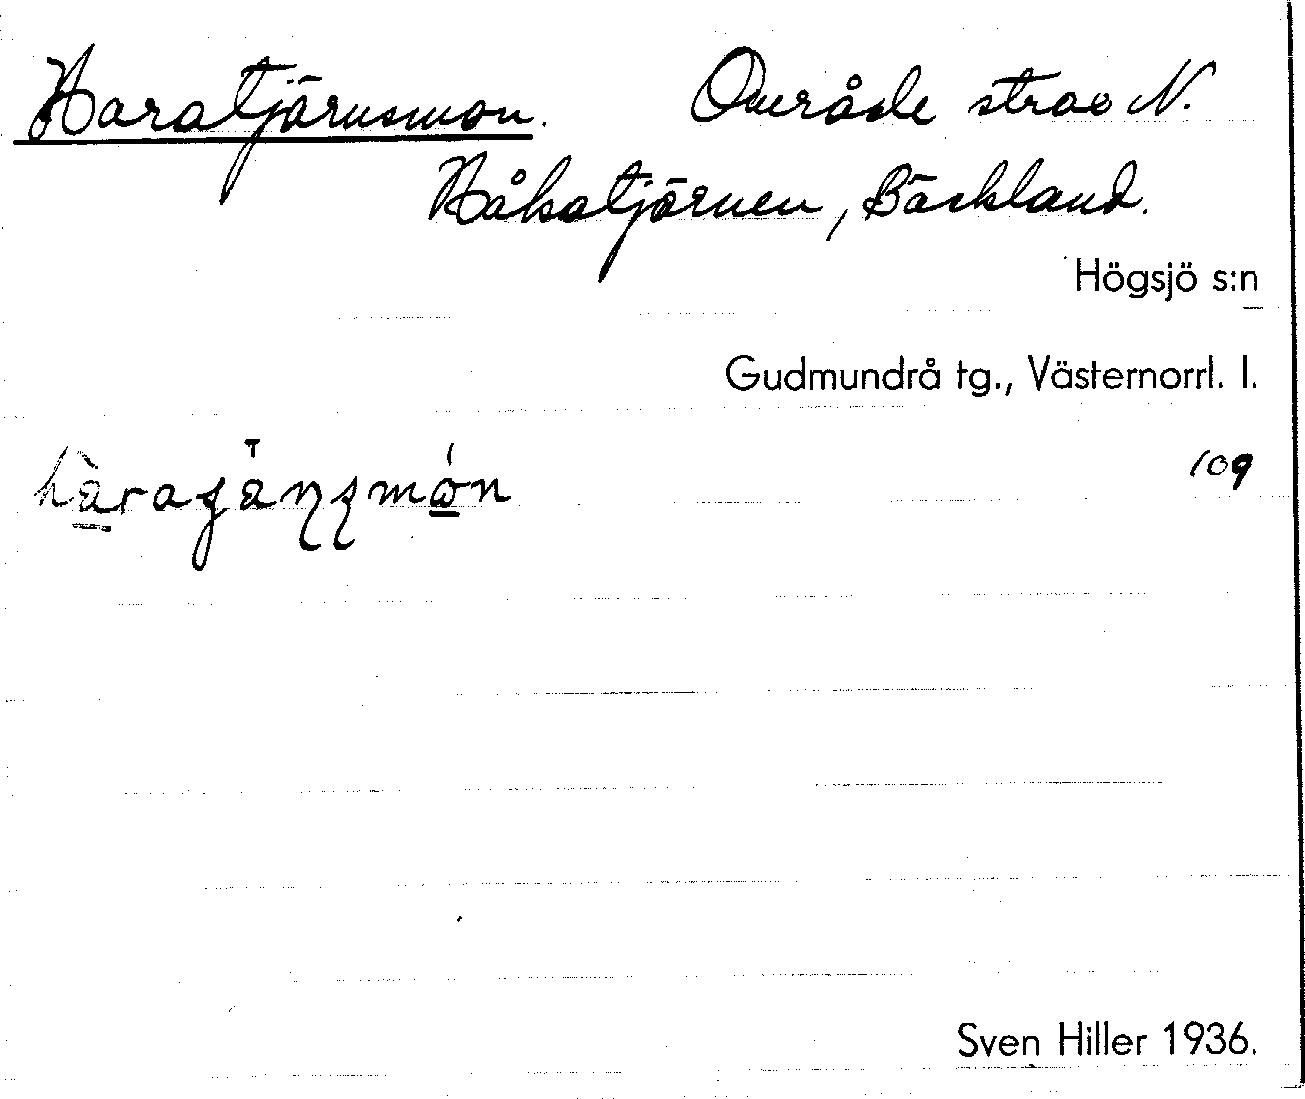 Haratjärnsmon. Område strax N.
Håkatjärnen, Bäckland.
Högsjö s:n
Gudmundrå tg., Västernorrl. l.
109
Sven Hiller 1936.